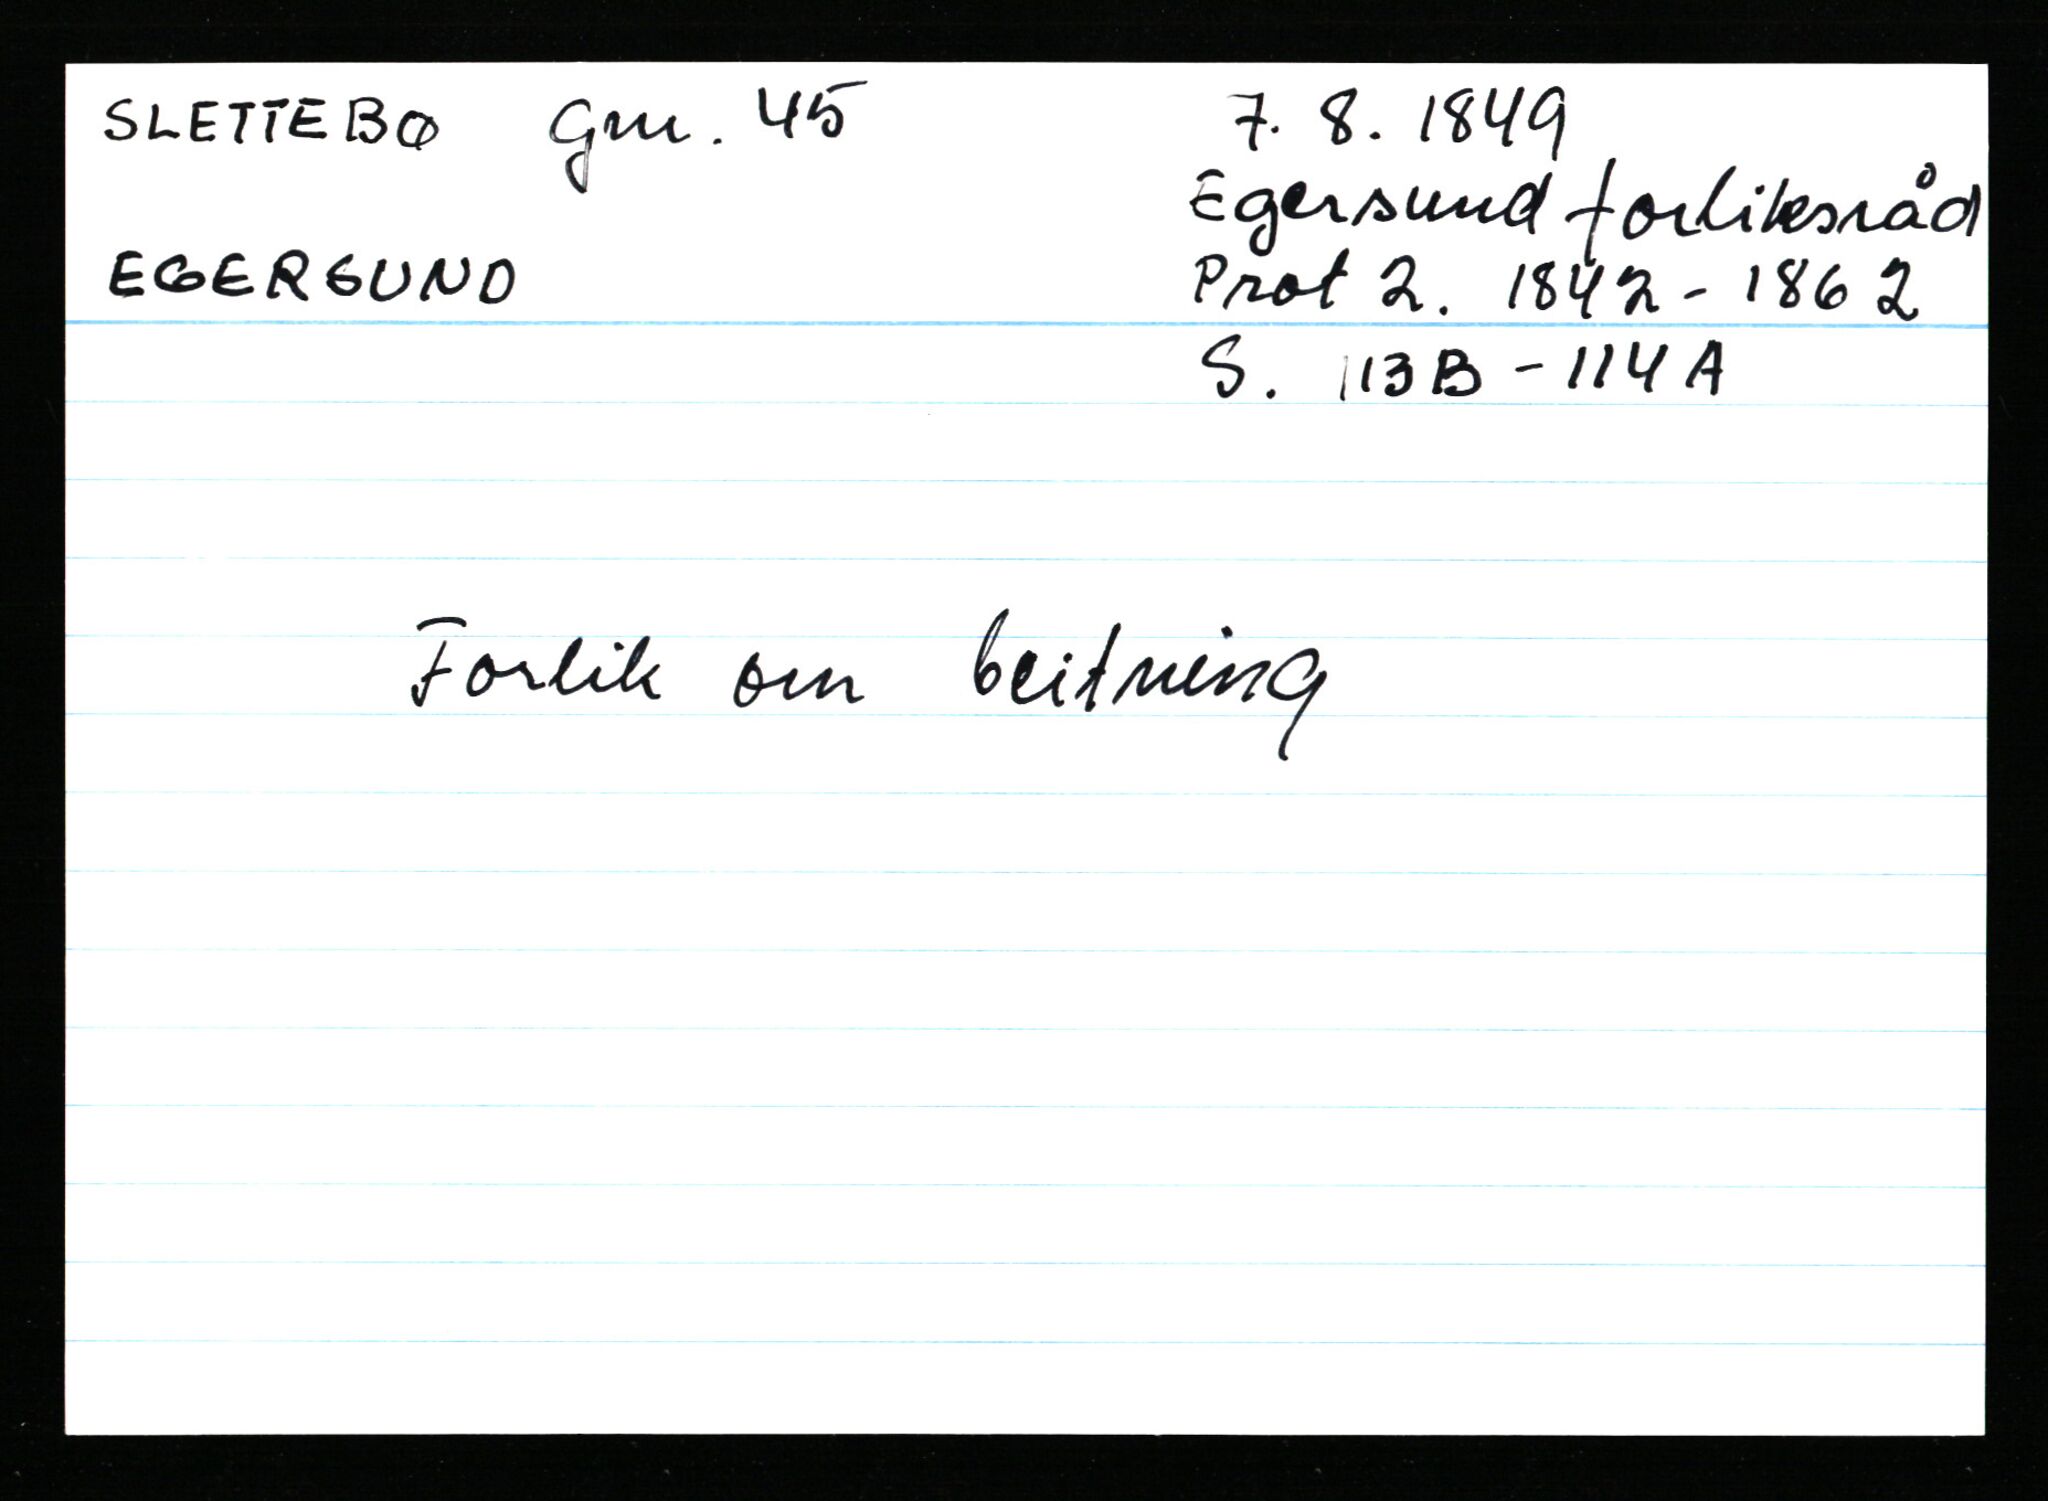 SLETTEBØ Gnr. 45
7. 8. 1849
Egersund forliksråd
EGERSUND
Prot 2. 1842 - 1862
S. 113B - 114A
Forlik om beitning